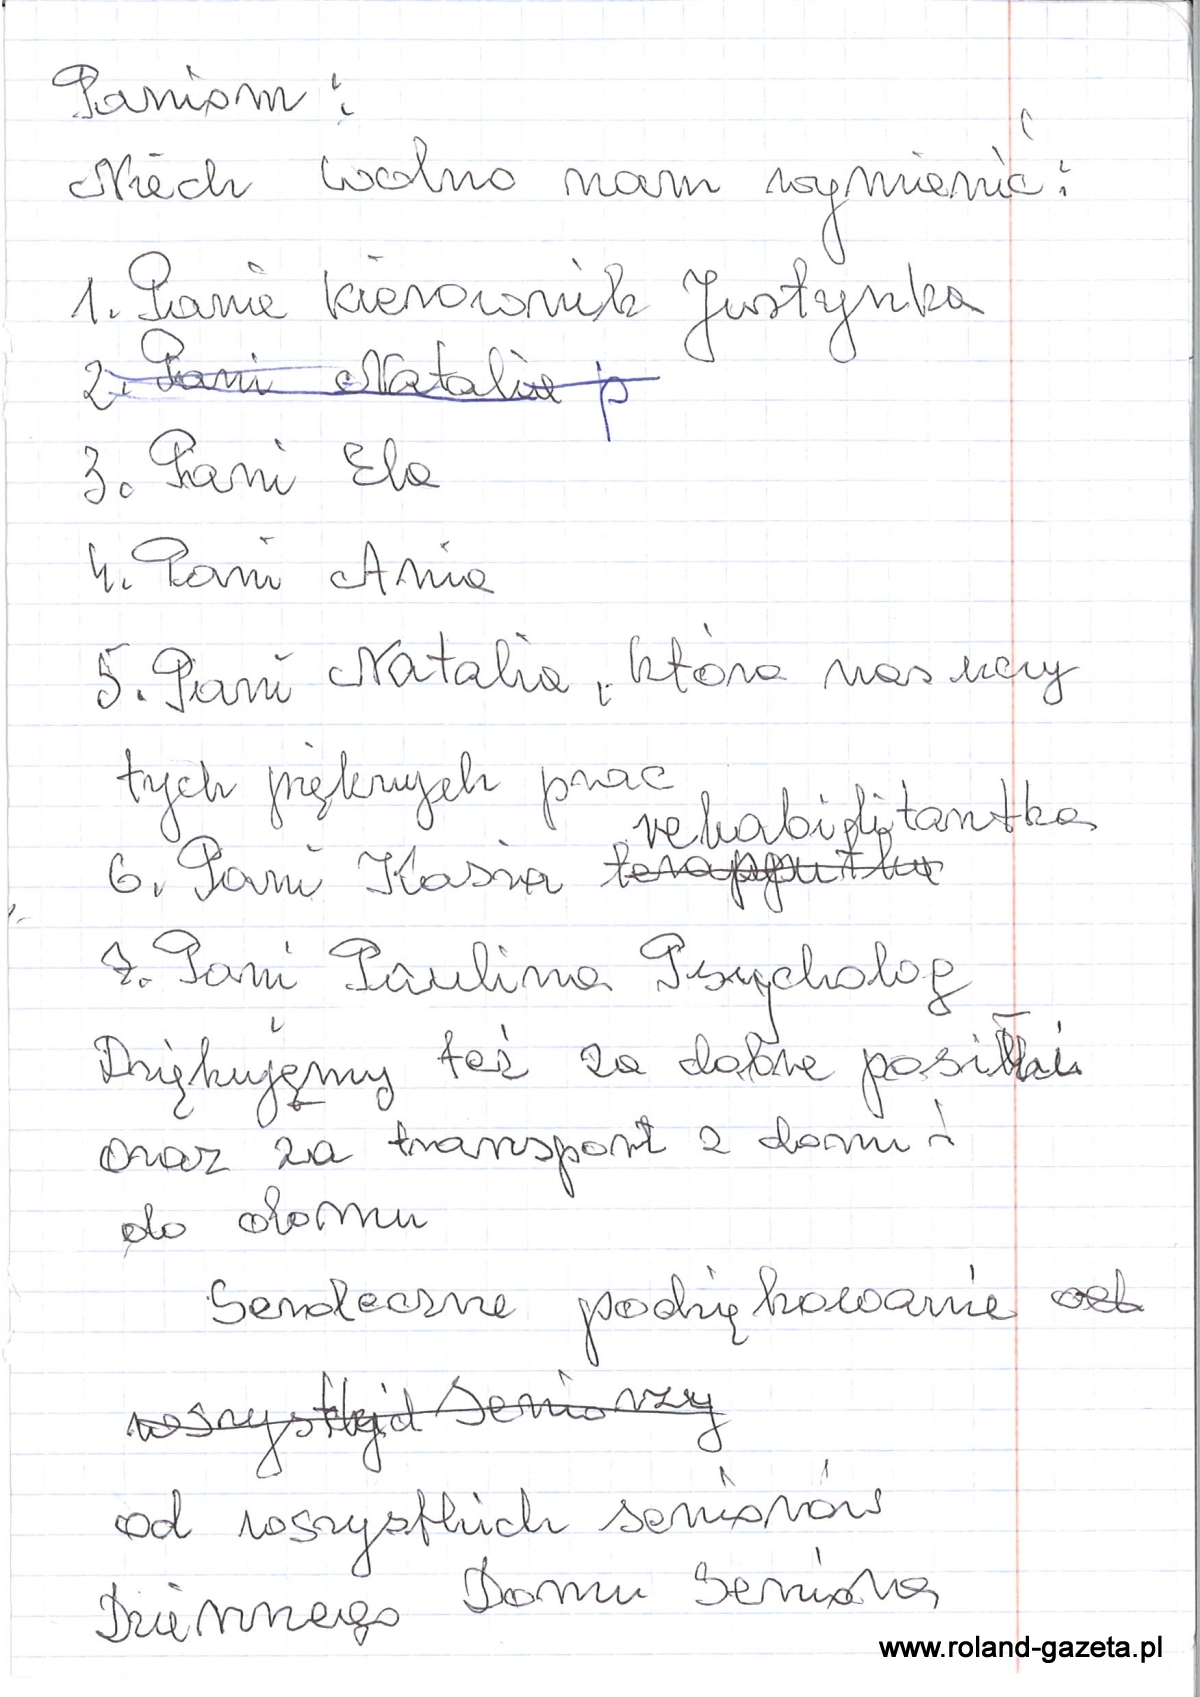 Paniom:
Niech wolno nam wymienić:
1. Panie kierownik Justynka
2. Pani Natalia p
3. Pani Ela
4. Pani Ania
5. Pani Natalia, która nas uczy
tych pięknych prac
rehabilitantka
6. Pani Kasia terapeutka
7. Pani Paulina Psycholog
Dziękujęmy też za dobre posiłki
oraz za transport z domu i
do domu
Serdeczne podziękowanie od
wszystkich Seniorzy
od wszystkich seniorów
Dziennego Domu Seniora
www.roland-gazeta.pl